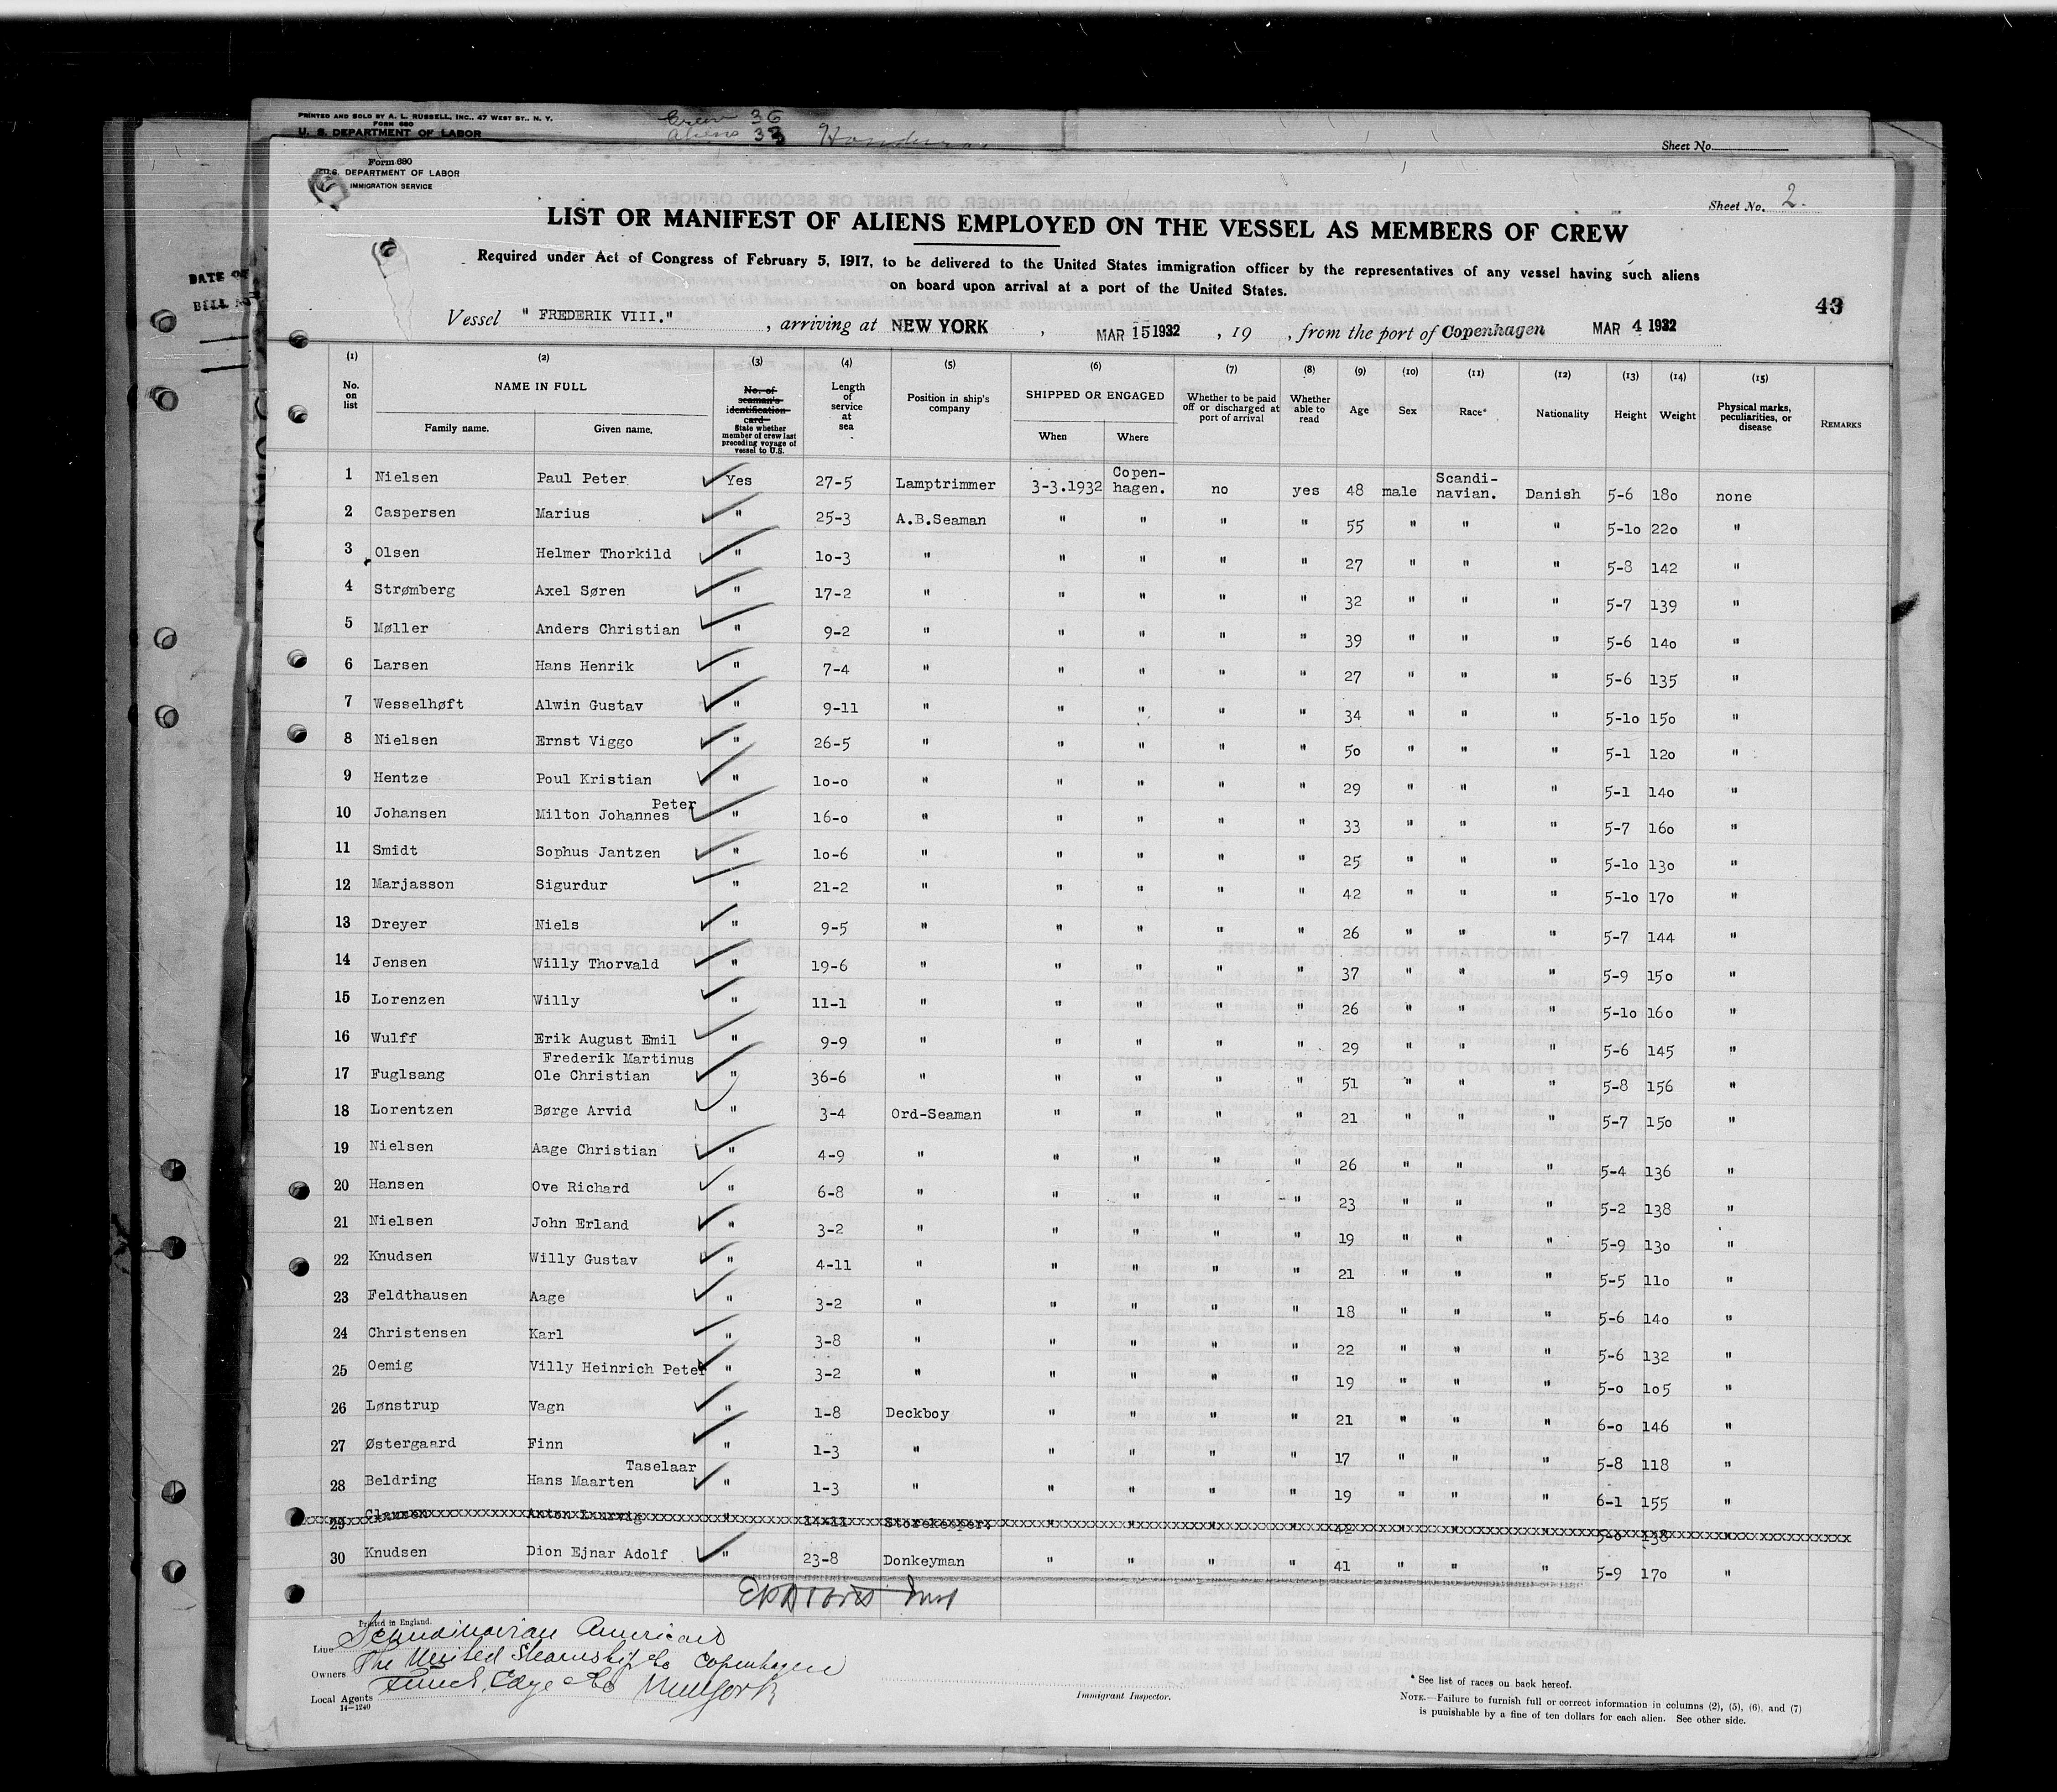 PRINTED AND SOLD BY A. L. RUSSELL, INC., 47 WEST ST., N. Y.
FORM 680
U. S. DEPARTMENT OF LABOR
Crew 36
aliens 33 Honduras
Sheet No.
DATE OF
BILL
Form 680
U.S. DEPARTMENT OF LABOR
IMMIGRATION SERVICE
Sheet No. 2.
LIST OR MANIFEST OF ALIENS EMPLOYED ON THE VESSEL AS MEMBERS OF CREW
Required under Act of Congress of February 5, 1917, to be delivered to the United States immigration officer by the representatives of any vessel having such aliens
on board upon arrival at a port of the United States.
43
Vessel " FREDERIK VIII." , arriving at NEW YORK , MAR 15 1932 , 19 , from the port of Copenhagen MAR 4 1932
(1) (2) (3) (4) (5) (6) (7) (8) (9) (10) (11) (12) (13) (14) (15)
No. on list NAME IN FULL Family name. Given name. No. of seaman's identification card State whether member of crew last preceding voyage of vessel to U.S. Length of service at sea Position in ship's company SHIPPED OR ENGAGED When Where Whether to be paid off or discharged at port of arrival Whether able to read Age Sex Race* Nationality Height Weight Physical marks, peculiarities, or disease REMARKS
1 Nielsen Paul Peter Yes 27-5 Lamptrimmer 3-3.1932 Copen-hagen. no yes 48 male Scandi-navian. Danish 5-6 180 none
2 Caspersen Marius " 25-3 A.B.Seaman " " " " 55 " " " 5-10 220 "
3 Olsen Helmer Thorkild " 10-3 " " " " " 27 " " " 5-8 142 "
4 Strømberg Axel Søren " 17-2 " " " " " 32 " " " 5-7 139 "
5 Møller Anders Christian " 9-2 " " " " " 39 " " " 5-6 140 "
6 Larsen Hans Henrik " 7-4 " " " " " 27 " " " 5-6 135 "
7 Wesselhøft Alwin Gustav " 9-11 " " " " " 34 " " " 5-10 150 "
8 Nielsen Ernst Viggo " 26-5 " " " " " 50 " " " 5-1 120 "
9 Hentze Poul Kristian " 10-0 " " " " " 29 " " " 5-1 140 "
Peter
10 Johansen Milton Johannes " 16-0 " " " " " 33 " " " 5-7 160 "
11 Smidt Sophus Jantzen " 10-6 " " " " " 25 " " " 5-10 130 "
12 Marjasson Sigurdur " 21-2 " " " " " 42 " " " 5-10 170 "
13 Dreyer Niels " 9-5 " " " " " 26 " " " 5-7 144 "
14 Jensen Willy Thorvald " 19-6 " " " " " 37 " " " 5-9 150 "
15 Lorenzen Willy " 11-1 " " " " " 26 " " " 5-10 160 "
16 Wulff Erik August Emil " 9-9 " " " " " 29 " " " 5-6 145 "
Frederik Martinus
17 Fuglsang Ole Christian " 36-6 " " " " " 51 " " " 5-8 156 "
18 Lorentzen Børge Arvid " 3-4 Ord-Seaman " " " " 21 " " " 5-7 150 "
19 Nielsen Aage Christian " 4-9 " " " " " 26 " " " 5-4 136 "
20 Hansen Ove Richard " 6-8 " " " " " 23 " " " 5-2 138 "
21 Nielsen John Erland " 3-2 " " " " " 19 " " " 5-9 130 "
22 Knudsen Willy Gustav " 4-11 " " " " " 21 " " " 5-5 110 "
23 Feldthausen Aage " 3-2 " " " " " 18 " " " 5-6 140 "
24 Christensen Karl " 3-8 " " " " " 22 " " " 5-6 132 "
25 Oemig Villy Heinrich Peter " 3-2 " " " " " 19 " " " 5-0 105 "
26 Lønstrup Vagn " 1-8 Deckboy " " " " 21 " " " 6-0 146 "
27 Østergaard Finn " 1-3 " " " " " 17 " " " 5-8 118 "
Taselaar
28 Beldring Hans Maarten " 1-3 " " " " " 19 " " " 6-1 155 "
29 Anton Storekeeper. " " " " 42 " " " 138 "
30 Knudsen Dion Ejnar Adolf " 23-8 Donkeyman " " " " 41 " " " 5-9 170 "
Printed in England.
Line Scandinavian American
Owners The United Steamship Co Copenhagen
Local Agents Funch, Edye & Co New York
14-1240
Immigrant Inspector.
* See list of races on back hereof.
NOTE.—Failure to furnish full or correct information in columns (2), (5), (6), and (7)
is punishable by a fine of ten dollars for each alien. See other side.